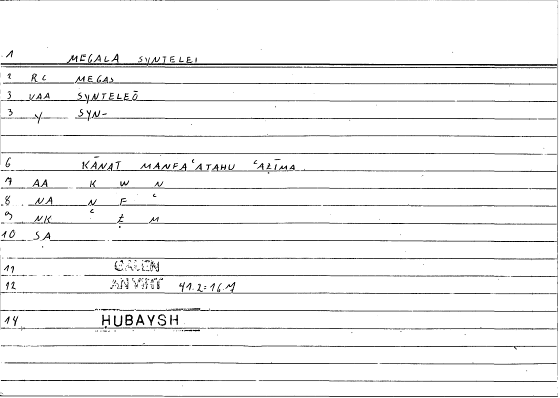 1 MEGALA SYNTELEI
2 RC MEGAS
3 VAA SYNTELEŌ
3 Y SYN-
6 KĀNAT MANFAʿATAHU ʿAẒĪMA
7 AA K W N
8 NA N F ʿ
9 NK ʿ Ẓ M
10 SA
11 GALEN
12 AN VIRT 41.2:16M
14 ḤUBAYSH